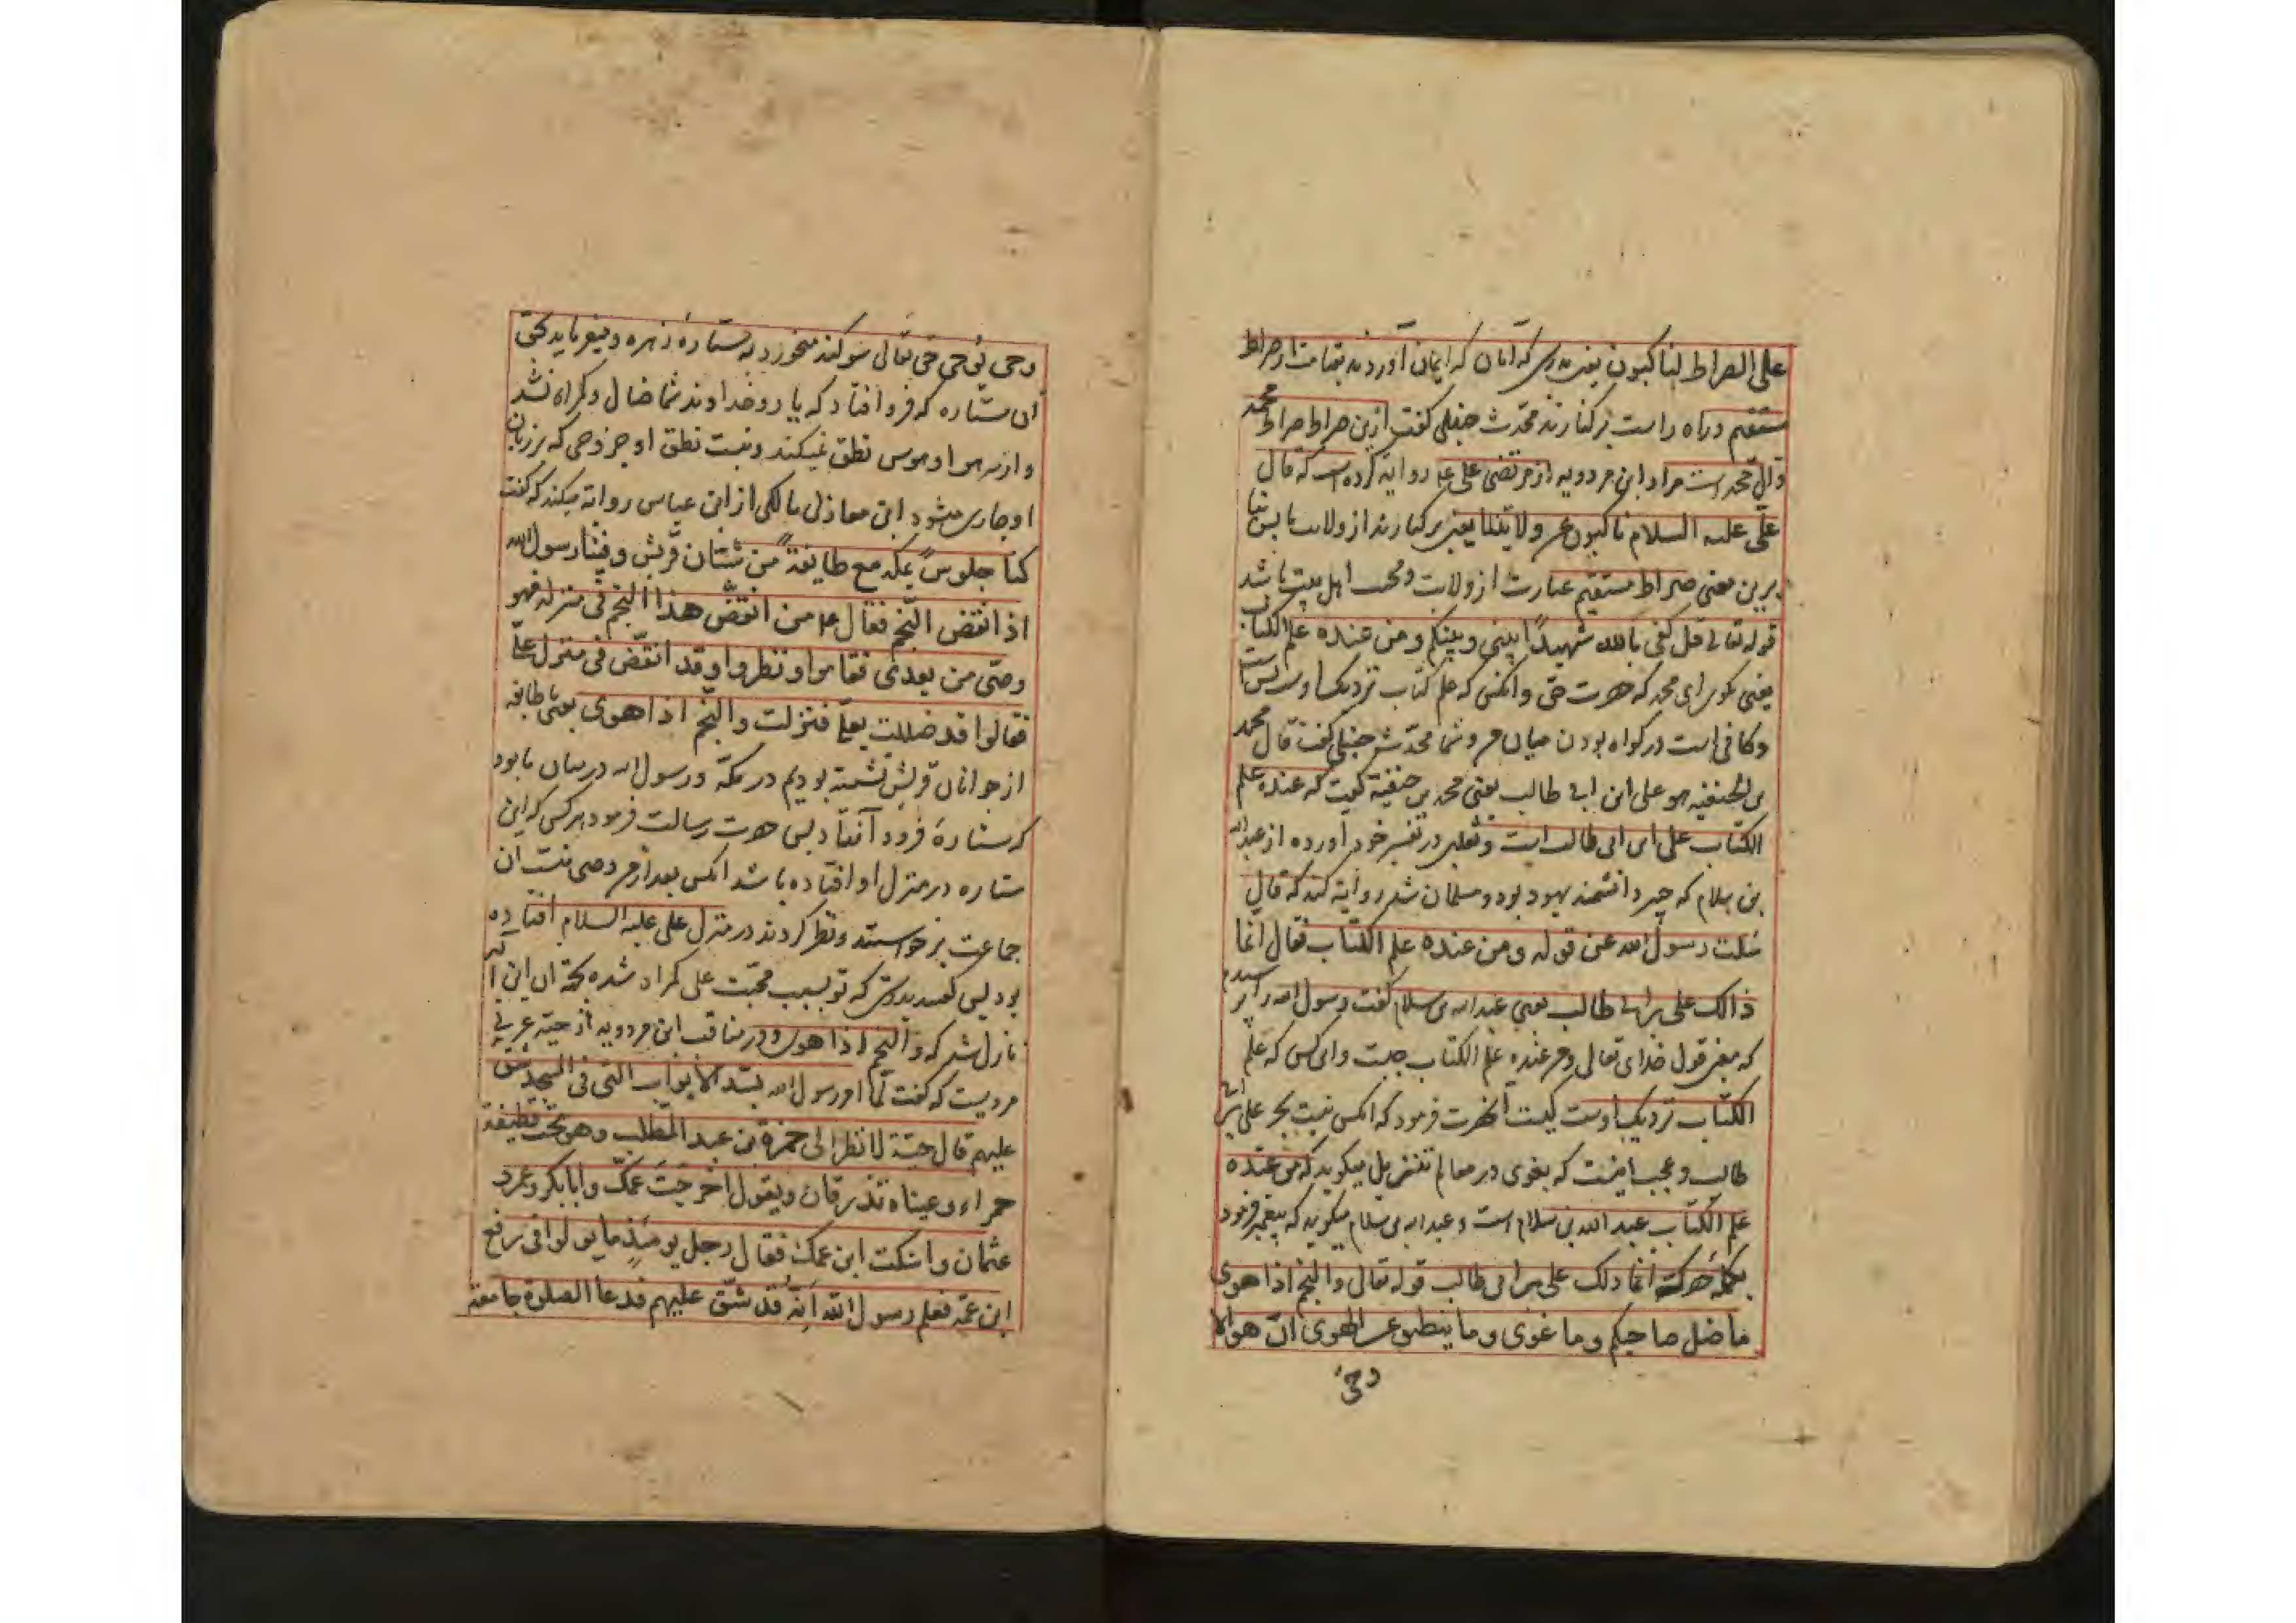 علی الصراط لناکبون یعنی بدرستی که آنان که ایمان آوردند بقیامت از صراط
مستقیم و راه راست برکنارند محدث حنبلی گفت ازین صراط صراط محمد
وآل محمد است مراد ابن مردویه از مرتضی علی ع روایة کرده است که قال
علی علیه السلام ناکبون عن ولایتنا یعنی برکنارند از ولایت ما پس بنا
برین معنی صراط مستقیم عبارت از ولایت و محب اهل بیت باشد
قوله تعالی قل کفی بالله شهیدا بینی و بینکم و من عنده علم الکتاب
یعنی بگو ای محمد که حضرت حق و آنکس که علم کتاب نزدیک اوست بس است
و کافی است در گواه بودن میان من و شما محدث حنبلی گفت قال محمد
بن الحنفیه هو علی ابن ابی طالب یعنی محمد بن حنفیة گفت که عنده علم
الکتاب علی ابن ابی طالب است و ثعلبی در تفسیر خود آورده از عبد الله
بن سلام که حبر دانشمند یهود بود و مسلمان شد روایة کند که قال
سئلت رسول الله عن قوله و من عنده علم الکتاب فقال انما
ذالک علی بن ابی طالب یعنی عبد الله بن سلام گفت رسول الله را پرسیدم
که معنی قول خدای تعالی و من عنده علم الکتاب چیست و آن کس که علم
الکتاب نزدیک اوست کیست آنحضرت فرمود که آنکس نیست بجز علی بن ابی
طالب و عجب اینست که بغوی در معالم تنزیل میگوید که من عنده
علم الکتاب عبد الله بن سلام است و عبد الله بن سلام میگوید که پیغمبر فرمود
بکلمه حصر که انما ذلک علی بن ابی طالب قوله تعالی والنجم اذا هوی
ما ضل صاحبکم وما غوی وما ینطق عن الهوی ان هو الا
وحی
وحی یوحی حق تعالی سوگند میخورد به ستاره زهره و میفرماید بحق
آن ستاره که فرو افتاد که یار و خداوند شما ضال و گمراه نشد
و از سر هوا و هوس نطق نمیکند و نیست نطق او جز وحی که بر زبان
او جاری میشود ابن مغازلی مالکی از ابن عباس روایة میکند که گفت
کنا جلوس بمکه مع طایفة من شبان قریش و فینا رسول الله
اذ انقض النجم فقال ع من انقض هذا النجم فی منزله فهو
وصی من بعدی فقاموا و نظروا و قد انقض فی منزل علی
فقالوا قد ضللت بعلی فنزلت والنجم اذا هوی یعنی با طایفه
از جوانان قریش نشسته بودیم در مکة و رسول الله در میان ما بود
که ستاره فرود آفتاد پس حضرت رسالت فرمود هر کس که این
ستاره در منزل او افتاده باشد آنکس بعد از من وصی منست آن
جماعت برخواستند و نظر کردند در منزل علی علیه السلام افتاده
بود پس گفتند بدرستی که تو بسبب محبت علی گمراه شده بجهة آن این آیه
نازل شد که والنجم اذا هوی و در مناقب ابن مردویه از حبة عرنی
مرویست که گفت لما امر رسول الله بسد الابواب التی فی المسجد شق
علیهم قال حبة لانظر الی حمزة بن عبد المطلب و هو تحت قطیفة
حمراء و عیناه تذرقان و یقول اخرجت عمک و ابابکر و عمر و
عثمان و اسکنت ابن عمک فقال رجل یومئذ ما یولوا فی رفع
ابن عمه فعلم رسول الله انه قد شق علیهم فدعا الصلوة جامعة